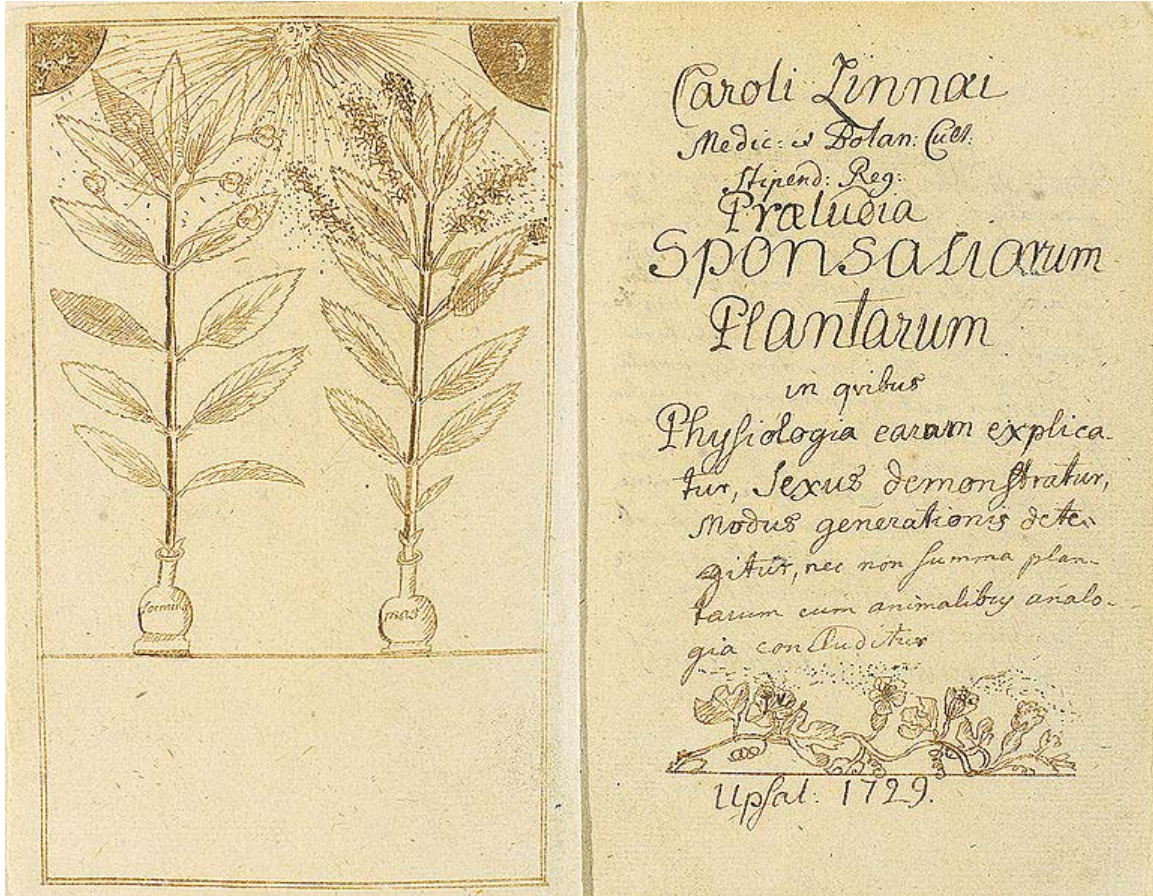 foemin
mas
Caroli Linnæi
Medic: et Botan: Cult:
Stipend: Reg:
Præludia
Sponsaliarum
Plantarum
in qvibus
Physiologia earum explica-
tur, Sexus demonstratur,
Modus generationis dete-
gitur, nec non summa plan-
tarum cum animalibus analo-
gia concluditur
Upsal: 1729.